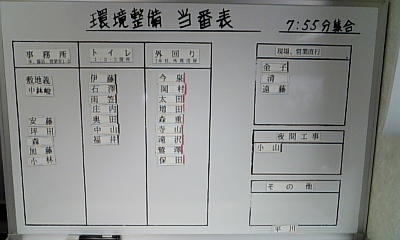 環境整備 当番表
7:55分集合
事務所
敷地義
中鉢峻
安藤
坪田
森
加藤
小林
トイレ
伊藤
石澤
雨笠
庄内
奥田
中山
福井
外回り
今泉
岡村
太田
増田
森重
寺山
遠沢
鷲澤
保田
現場、営業直行
金子
清
遠藤
夜間工事
小山
その他
平川